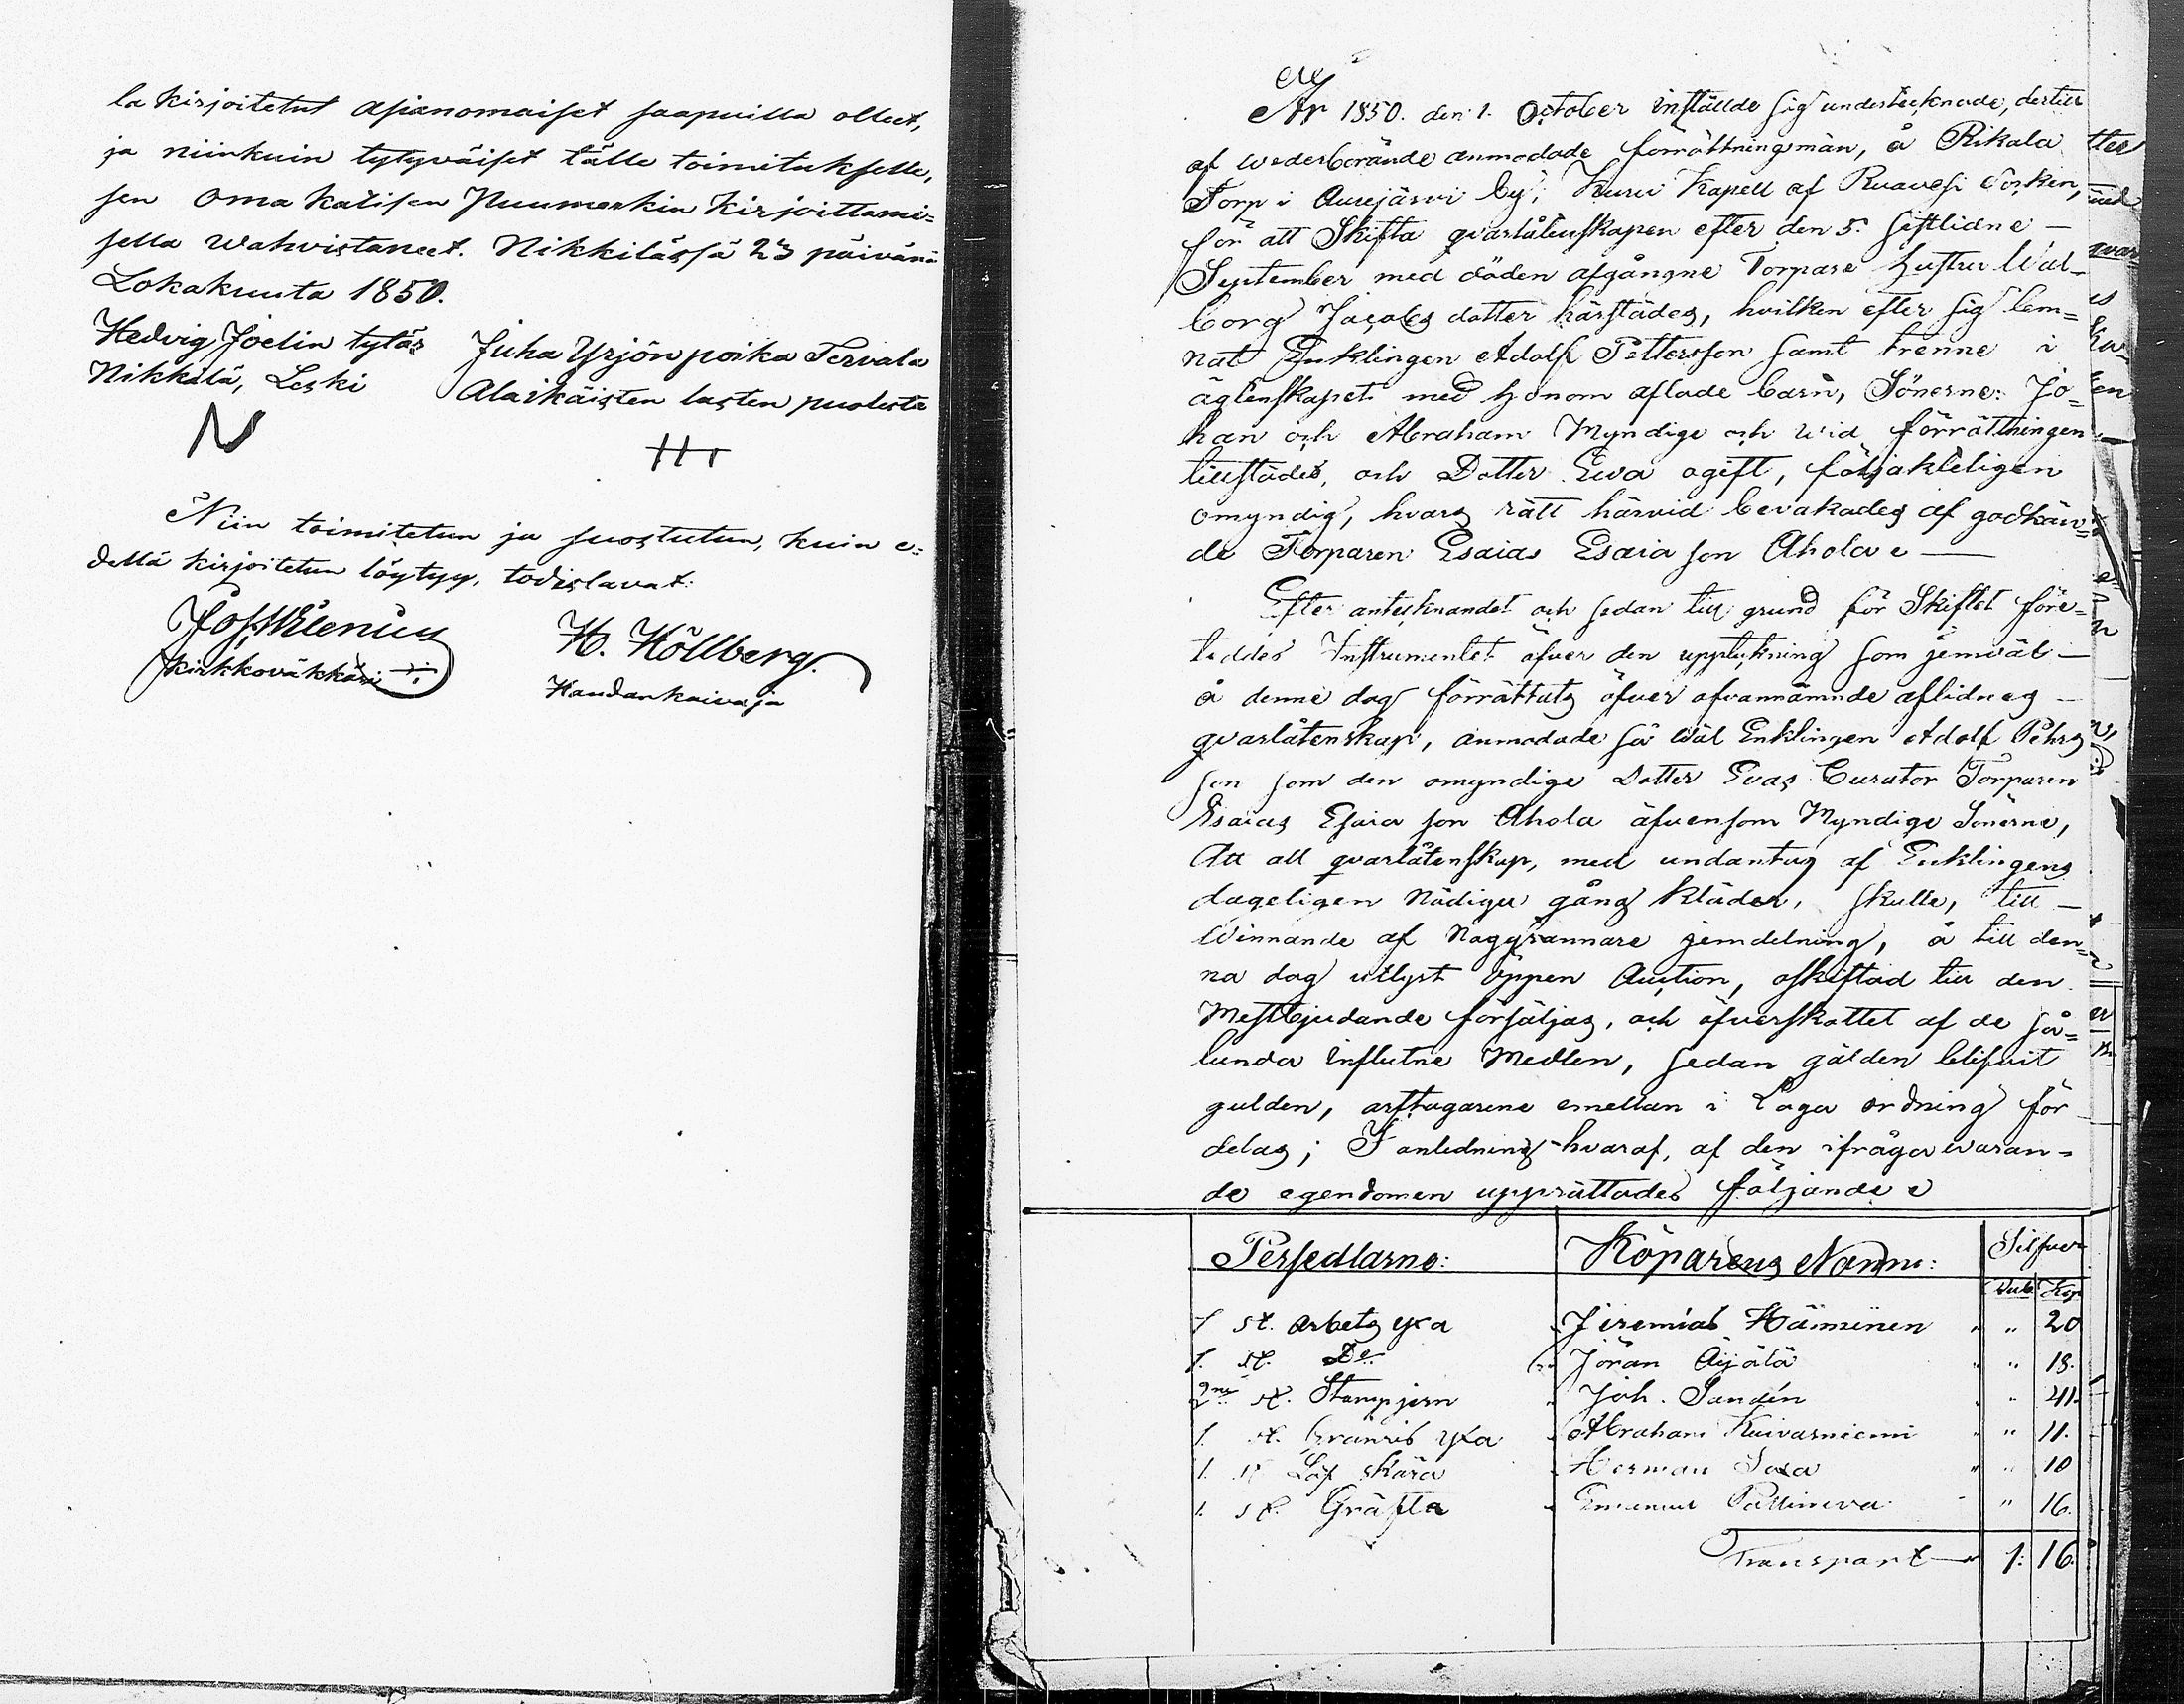 la kirjoitetut asianomaiset saapuilla olleet,
ja niinkuin tytyväiset tälle toimitukselle,
sen Oma kätisen Puumerkin kirjoittami=
sella Wahvistaneet. Nikkilässä 23 päivänä
Lokakuuta 1850.
Hedvig Joelin tytär
Nikkilä, Leski
Juha Yrjön poika Tervala
Alaikäisten lasten puolesta
Niin toimitetun ja suostutun, kuin e=
dellä kirjoitetun löytyy, todistavat:
Kirkkoväkkäri
H. Höllberg.
Haudankaivaja
År 1850. den 1. October instälde sig undertecknade, dertill
af wederbörande anmodade förrättningsmän, å Rikala
Torp i Aurejärvi by, Kuru Kapell af Ruovesi Socken,
för att Skifta qvarlåtenskapen efter den 5. sistlidne —
September med döden afgångne Torpare hustru Wal=
borg Jacobs dotter härstädes, hvilken efter sig lem=
nat Enklingen Adolf Pettersson samt trenne i
ägtenskapet med honom aflade barn, Sönerne: Jo=
han och Abraham Myndige och wid förrättningen
tillstädes, och Dotter Ewa ogift, följakteligen
omyndig, hvars rätt härvid bevakades af godkän=
de Torparen Esaias Esaia son Ahola —
Efter antecknandet och sedan till grund för Skiftet före=
teddes Instrumentet öfver den uppteckning som jemväl —
å denne dag förrättats öfver ofvannämnde aflidnes —
qvarlåtenskap, anmodade så wäl Enklingen Adolf Pehrs
son som den omyndige Dotter Evas Curator Torparen
Esaias Esaia son Ahola äfvensom Myndige Sönerne,
Att all qvarlåtenskap, med undantag af Enklingens
dageligen Nödiga gång kläder, skulle, till —
Winnande af noggrannare jemdelning, å till den=
na dag utlyst öppen Auction, oskiftad till den
Mestbjudande försäljas, och öfverskottet af de så=
lunda influtne Medlen, sedan gälden blifvit
gulden, arftagarene emellan i Laga ordning för
delas; I anledning hvaraf, af den ifråga waran=
de egendomen upprättades följande
Persedlarne: Köparens Namn: Silfver
Rub. Kop.
1 st. arbets yxa Jeremias Hänninen " 20
1. st. Do Jöran Äijälä " 18.
2ne st. Stampjern Joh. Sandén " 41.
1. st. yxa Abraham Kuivasniemi " 11.
1. st Löf skära Herman Saxa " 10
1. st. Gräfta Emanuel " 16.
Transport 1: 16.